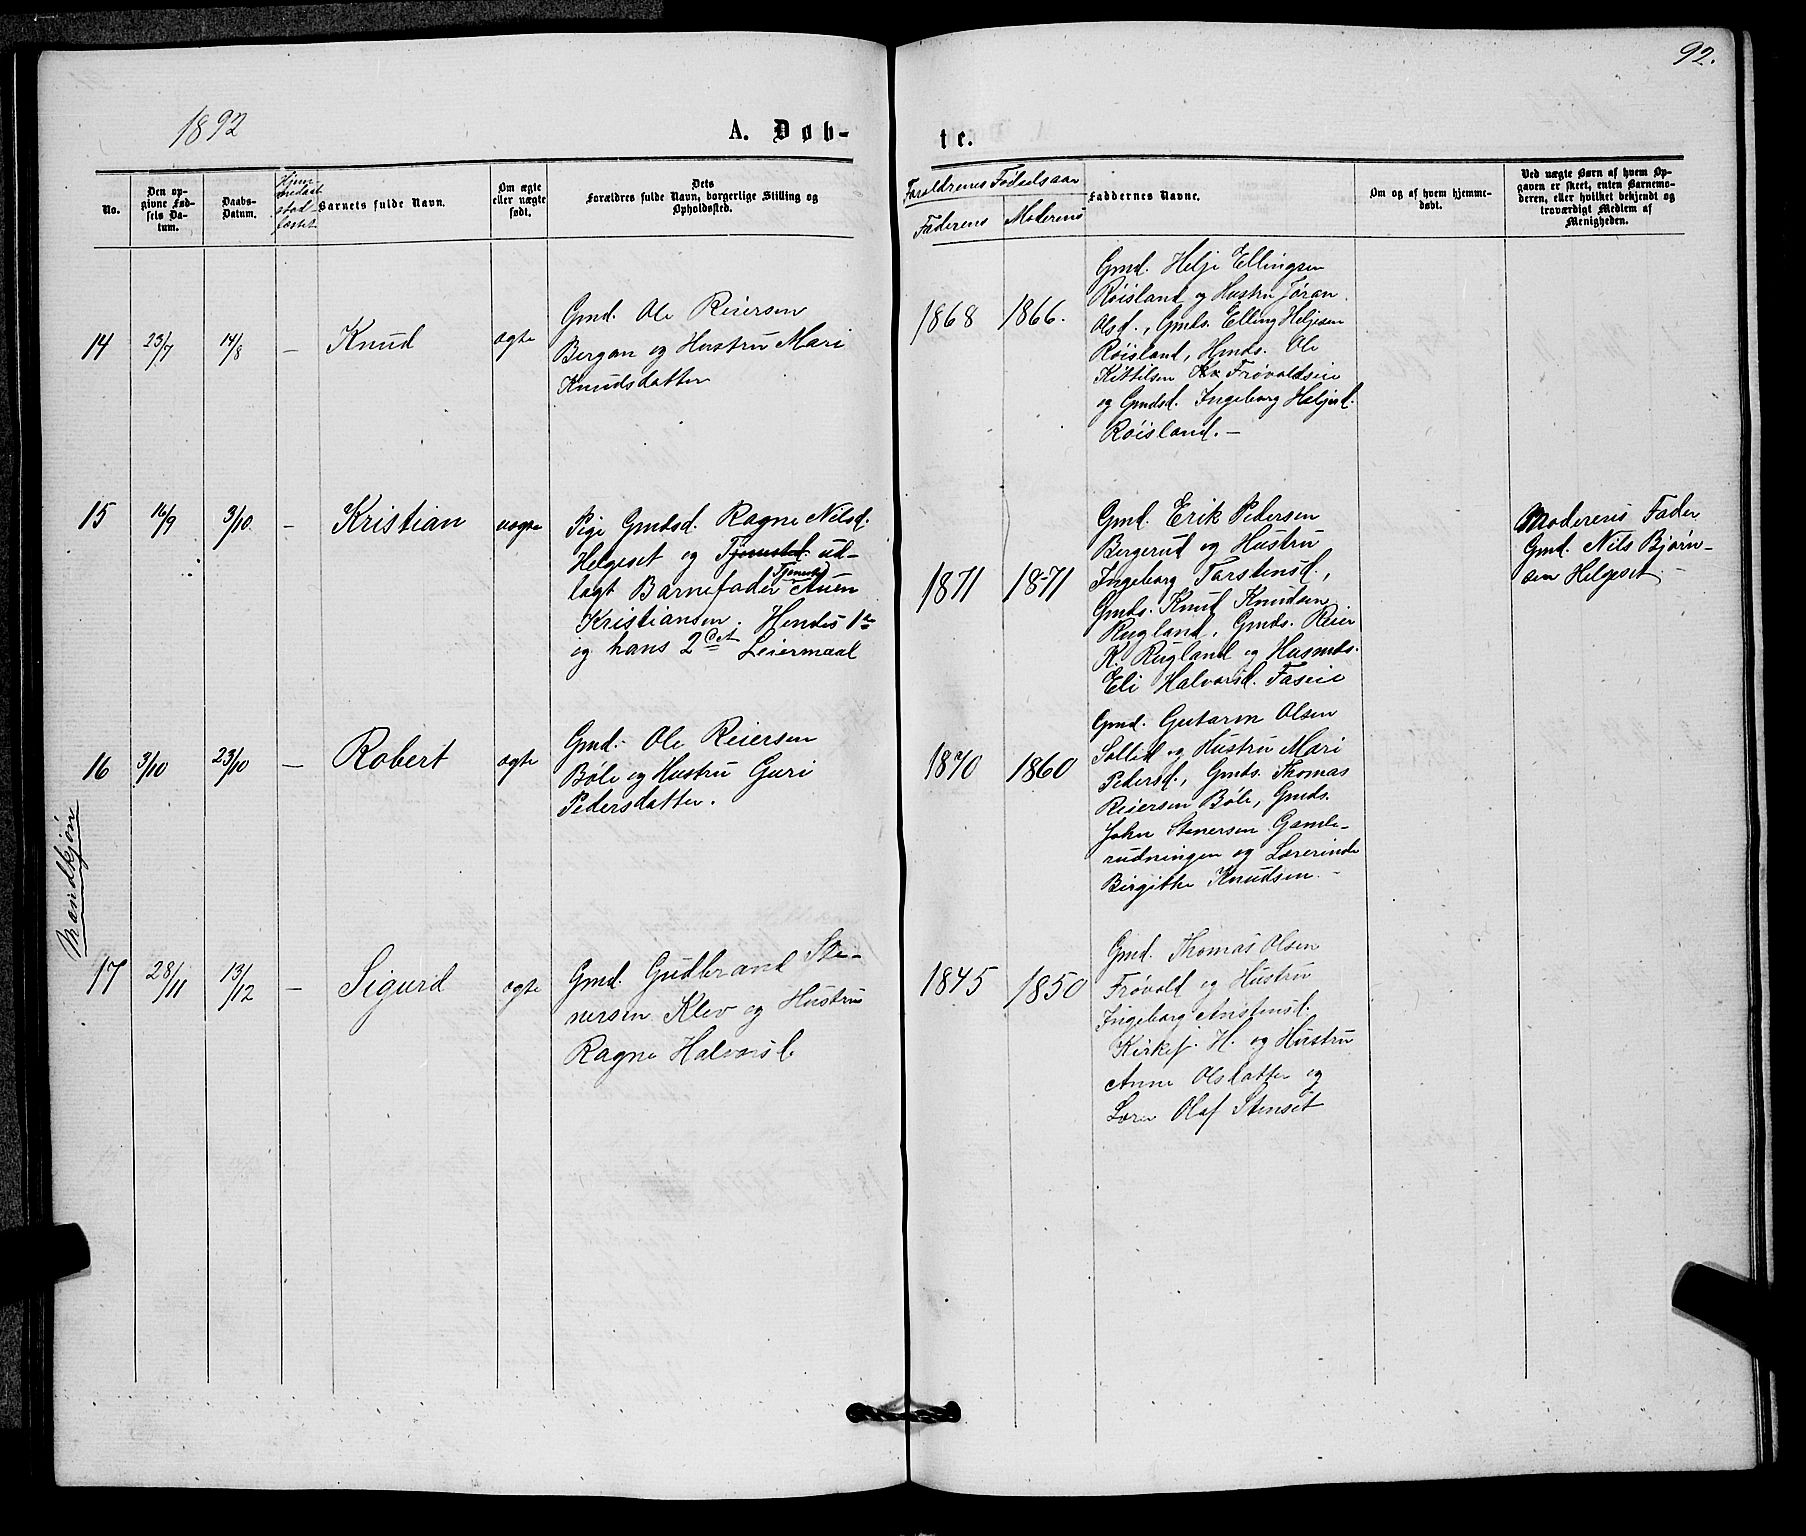 92.
1892
A. Døb-
te.
No.
Den op-
givne Fød-
sels Da-
tum.
Daabs-
Datum.
Hjem-
medaab
stad-
fæstet
Barnets fulde Navn.
Om ægte
eller uægte
født.
Dets
Forældres fulde Navn, borgerlige Stilling og
Opholdssted.
Forældrenes Fødselsaar
Faderens
Moderens
Faddernes Navne.
Om og af hvem hjemme-
døbt.
Ved uægte Børn af hvem Op-
gaven er skeet, enten Barnemo-
deren, eller hvilket bekjendt og
troværdigt Medlem af
Menigheden.
Mandkjøn
14
23/7
14/8
—
Knud
ægte
Gmd. Ole Reiersen
Bergan og Hustru Mari
Knudsdatter
1868
1866.
Gmd. Helje Ellingsen
Røisland og Hustru Jøran
Olsd., Gmds. Elling Heljesen
Røisland, Hmds. Ole
Kittilsen Frøvoldseie
og Gmdsd. Ingeborg Heljesd.
Røisland. —
15
16/9
3/10
—
Kristian
uægte
Pige Gmdsd. Ragne Nilsd.
Helgeset og Tjenestd. ud-
lagt Barnefader Tjenestd
Kristiansen. Hendes 1ste
og hans 2det Leiermaal
1871
1871
Gmd. Erik Pedersen
Bergerud og Hustru
Ingeborg Torstensd.,
Gmds. Knud Knudsen
Rugland, Gmds. Reier
K. Rugland og Husmds.
Eli Halvorsd. Faseie
Moderens Fader
Gmd. Nils Bjørn-
sen Helgeset. —
16
3/10
23/10
—
Robert
ægte
Gmd. Ole Reiersen
Bøle og Hustru Guri
Pedersdatter.
1870
1860
Gmd. Olsen
og Hustru Mari
Pedersd., Gmds. Thomas
Reiersen Bøle, Gmds.
John Stenersen Gamle-
rudningen og Lærerinde
Birgithe Knudsen. —
17
28/11
13/12
—
Sigurd
ægte
Gmd. Gudbrand Ste-
nersen Klev og Hustru
Ragne Halvorsd.
1845
1850
Gmd. Thomas Olsen
Frøvold og Hustru
Ingeborg Anstensd.
Kirkesj. H. og Hustru
Anne Olsdatter og
Lærer Olaf Stenset